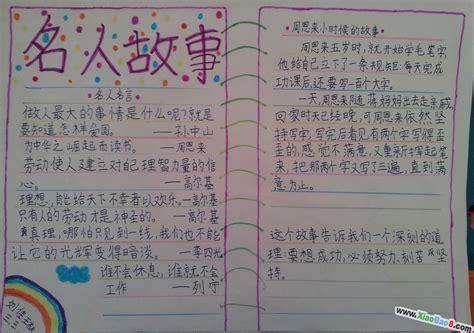 名人故事
名人名言
做人最大的事情是什么呢?就是
要知道怎样爱国。——孙中山
为中华之崛起而读书。——周恩来
劳动使人建立对自己理智力量的信
心。——高尔基
理想,能给天下不幸者以欢乐。——高尔基
只有人的劳动才是神圣的。——高尔基
真理,哪怕只见到一线,我们也不能
让它的光辉变得暗淡。——李四光
谁不会休息,谁就不会
工作——列宁
周恩来小时候的故事
周恩来五岁时,就开始学毛笔字,
他给自己立下了一条规矩:每天完成
功课后,还要写一百个大字。
一天,周恩来随蒋妈妈出去走亲戚,
回家时天已经晚,可周恩来依然坚
持写字,写完后看见有两个字写得歪
歪的,感觉不满意,又重新挥起笔
来,把那两个字又写了三遍,直到满
意为止。
这个故事告诉我们一个深刻的道
理:要想成功,必须努力、刻苦、坚
持。
www.XiaoBao8.com